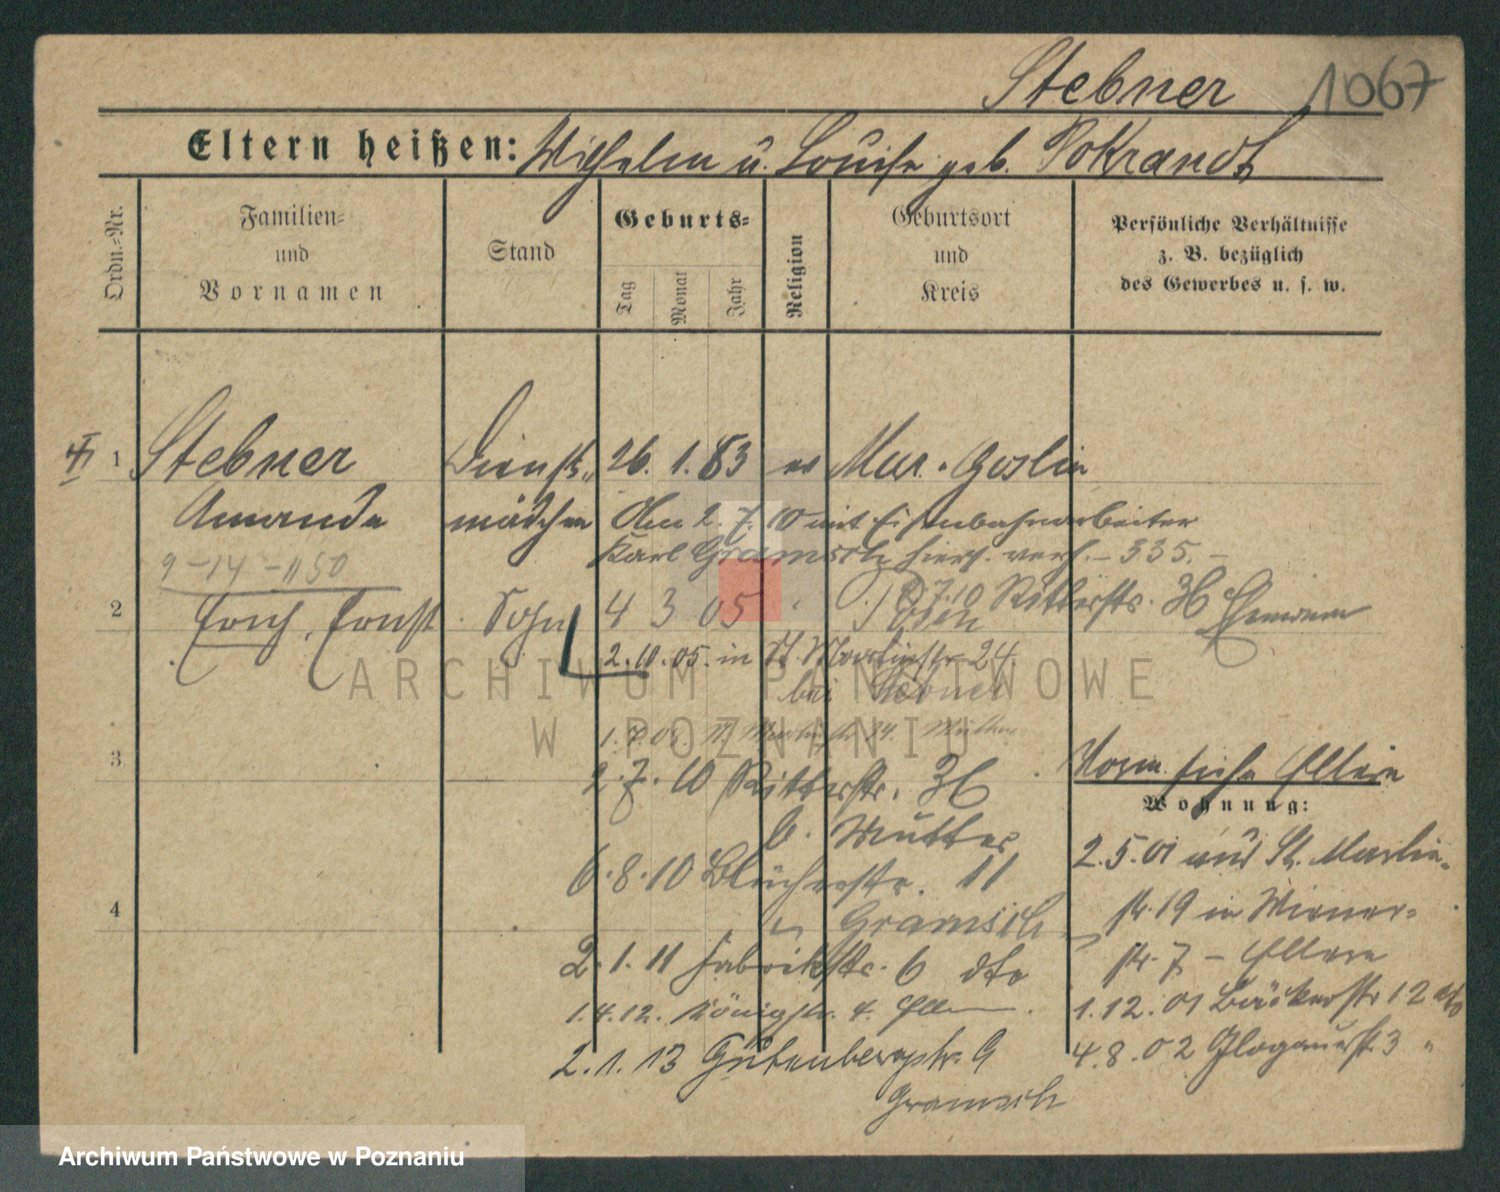 Stebner
1067
Eltern heißen: Wilhelm u. Louise geb. Pokrandt
Ordn.-Nr.
Familien-
und
Vornamen
Stand
Geburts-
Tag
Monat
Jahr
Religion
Geburtsort
und
Kreis
Persönliche Verhältnisse
z. B. bezüglich
des Gewerbes u. s. w.
1 Stebner Dienst- 26. 1. 83 ev Mur. Goslin
Amanda mädchen Am 2. 7. 10 mit Eisenbahnarbeiter
Karl Gramsch hier verh. – 335. –
9-14-1150
2 Erich, Ernst Sohn 4 3 05 Posen
2.7.10 Ritterstr. 36
2.10.05. in St. Martinstr. 24
bei Stebner
ARCHIWUM PAŃSTWOWE
W POZNANIU
3
2.7.10 Ritterstr. 36
b. Mutter
Vorm. siehe Eltern
Wohnung:
6.8.10 Blücherstr. 11
Gramsch
4
2.1.11 Fabrikstr. 6 dto
1.4.12. Königstr. 4. Eltern
2.1.13 Gutenbergstr. 9
Gramsch
2.5.01 aus St. Martin-
str. 19 in Wiener-
str. 7 – Eltern
1.12.01 Bäckerstr 12 dto
4.8.02 Glogauerst. 3 "
Archiwum Państwowe w Poznaniu